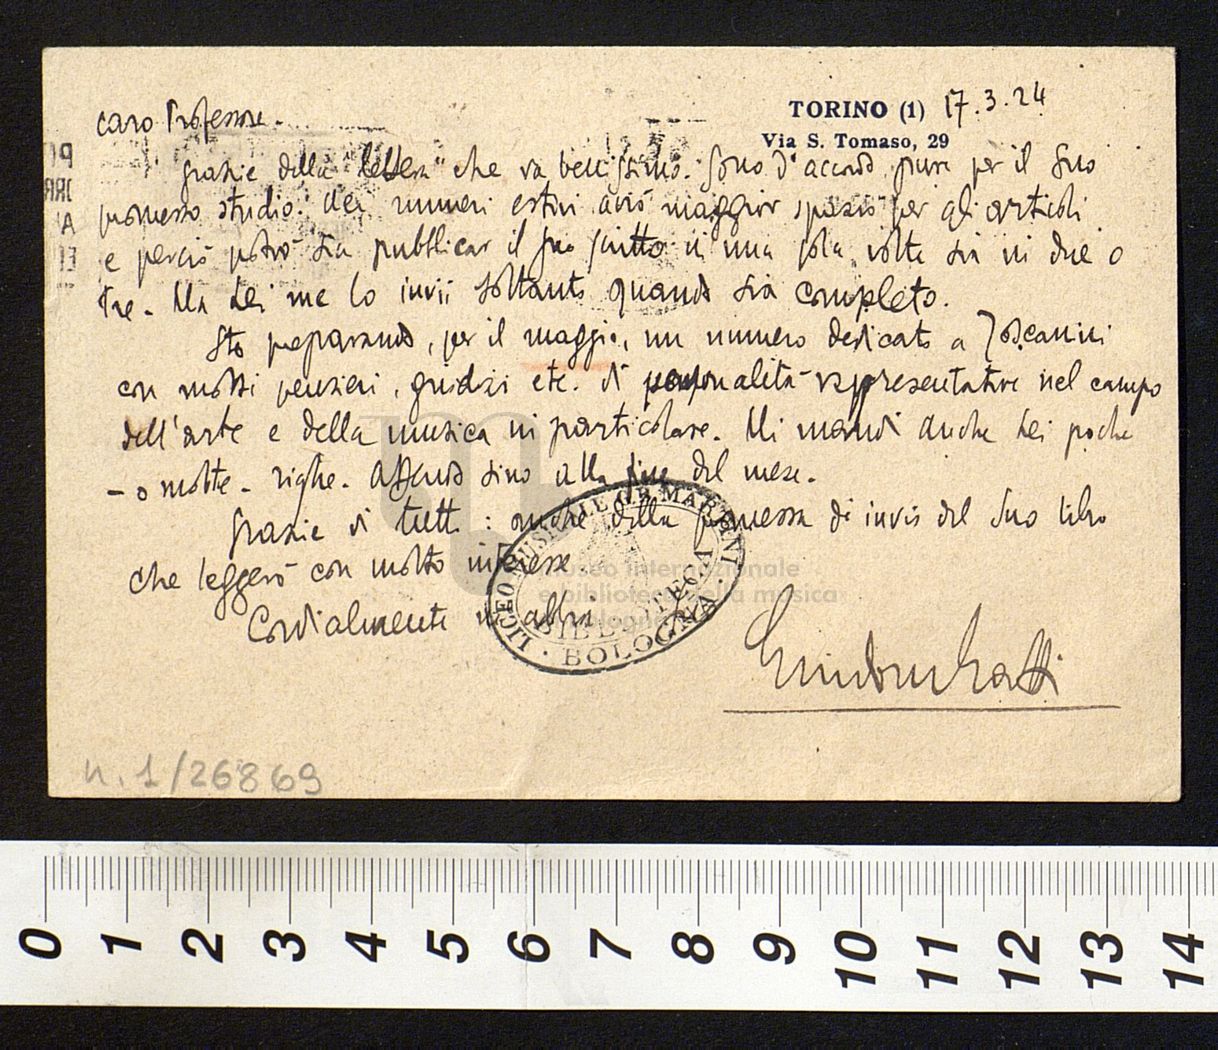 TORINO (1) 17.3.24
Via S. Tomaso, 29
Caro Professore.
Grazie della "lettera" che va benissimo. Sono d'accordo pure per il Suo
promesso studio. Nei numeri estivi avrò maggior spazio per gli articoli
e perciò potrò sia pubblicar il Suo scritto in una sola volta sia in due o
tre. Ma Lei me lo invii soltanto quando sia completo.
Sto preparando, per il maggio, un numero dedicato a Toscanini
con molti pensieri, giudizi etc. di personalità rappresentative nel campo
dell'arte e della musica in particolare. Mi mandi anche Lei poche
- o molte - righe. Attendo sino alla fine del mese.
Grazie di tutto: anche della promessa di invio del Suo libro
che leggerò con molto interesse.
Cordialmente
LICEO MUSICALE G.B. MARTINI
BIBLIOTECA
· BOLOGNA ·
museo internazionale
e biblioteca della musica
bologna
n. 1/26869
0 1 2 3 4 5 6 7 8 9 10 11 12 13 14